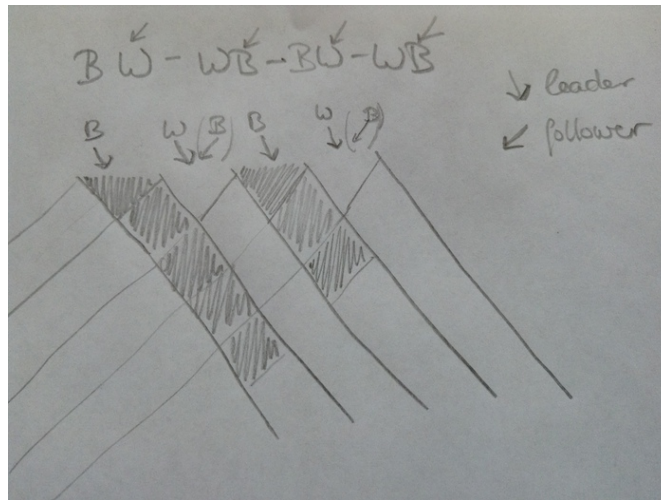 B W - WB - BW - WB
↘ leader
↙ follower
B W (B) B W (B)